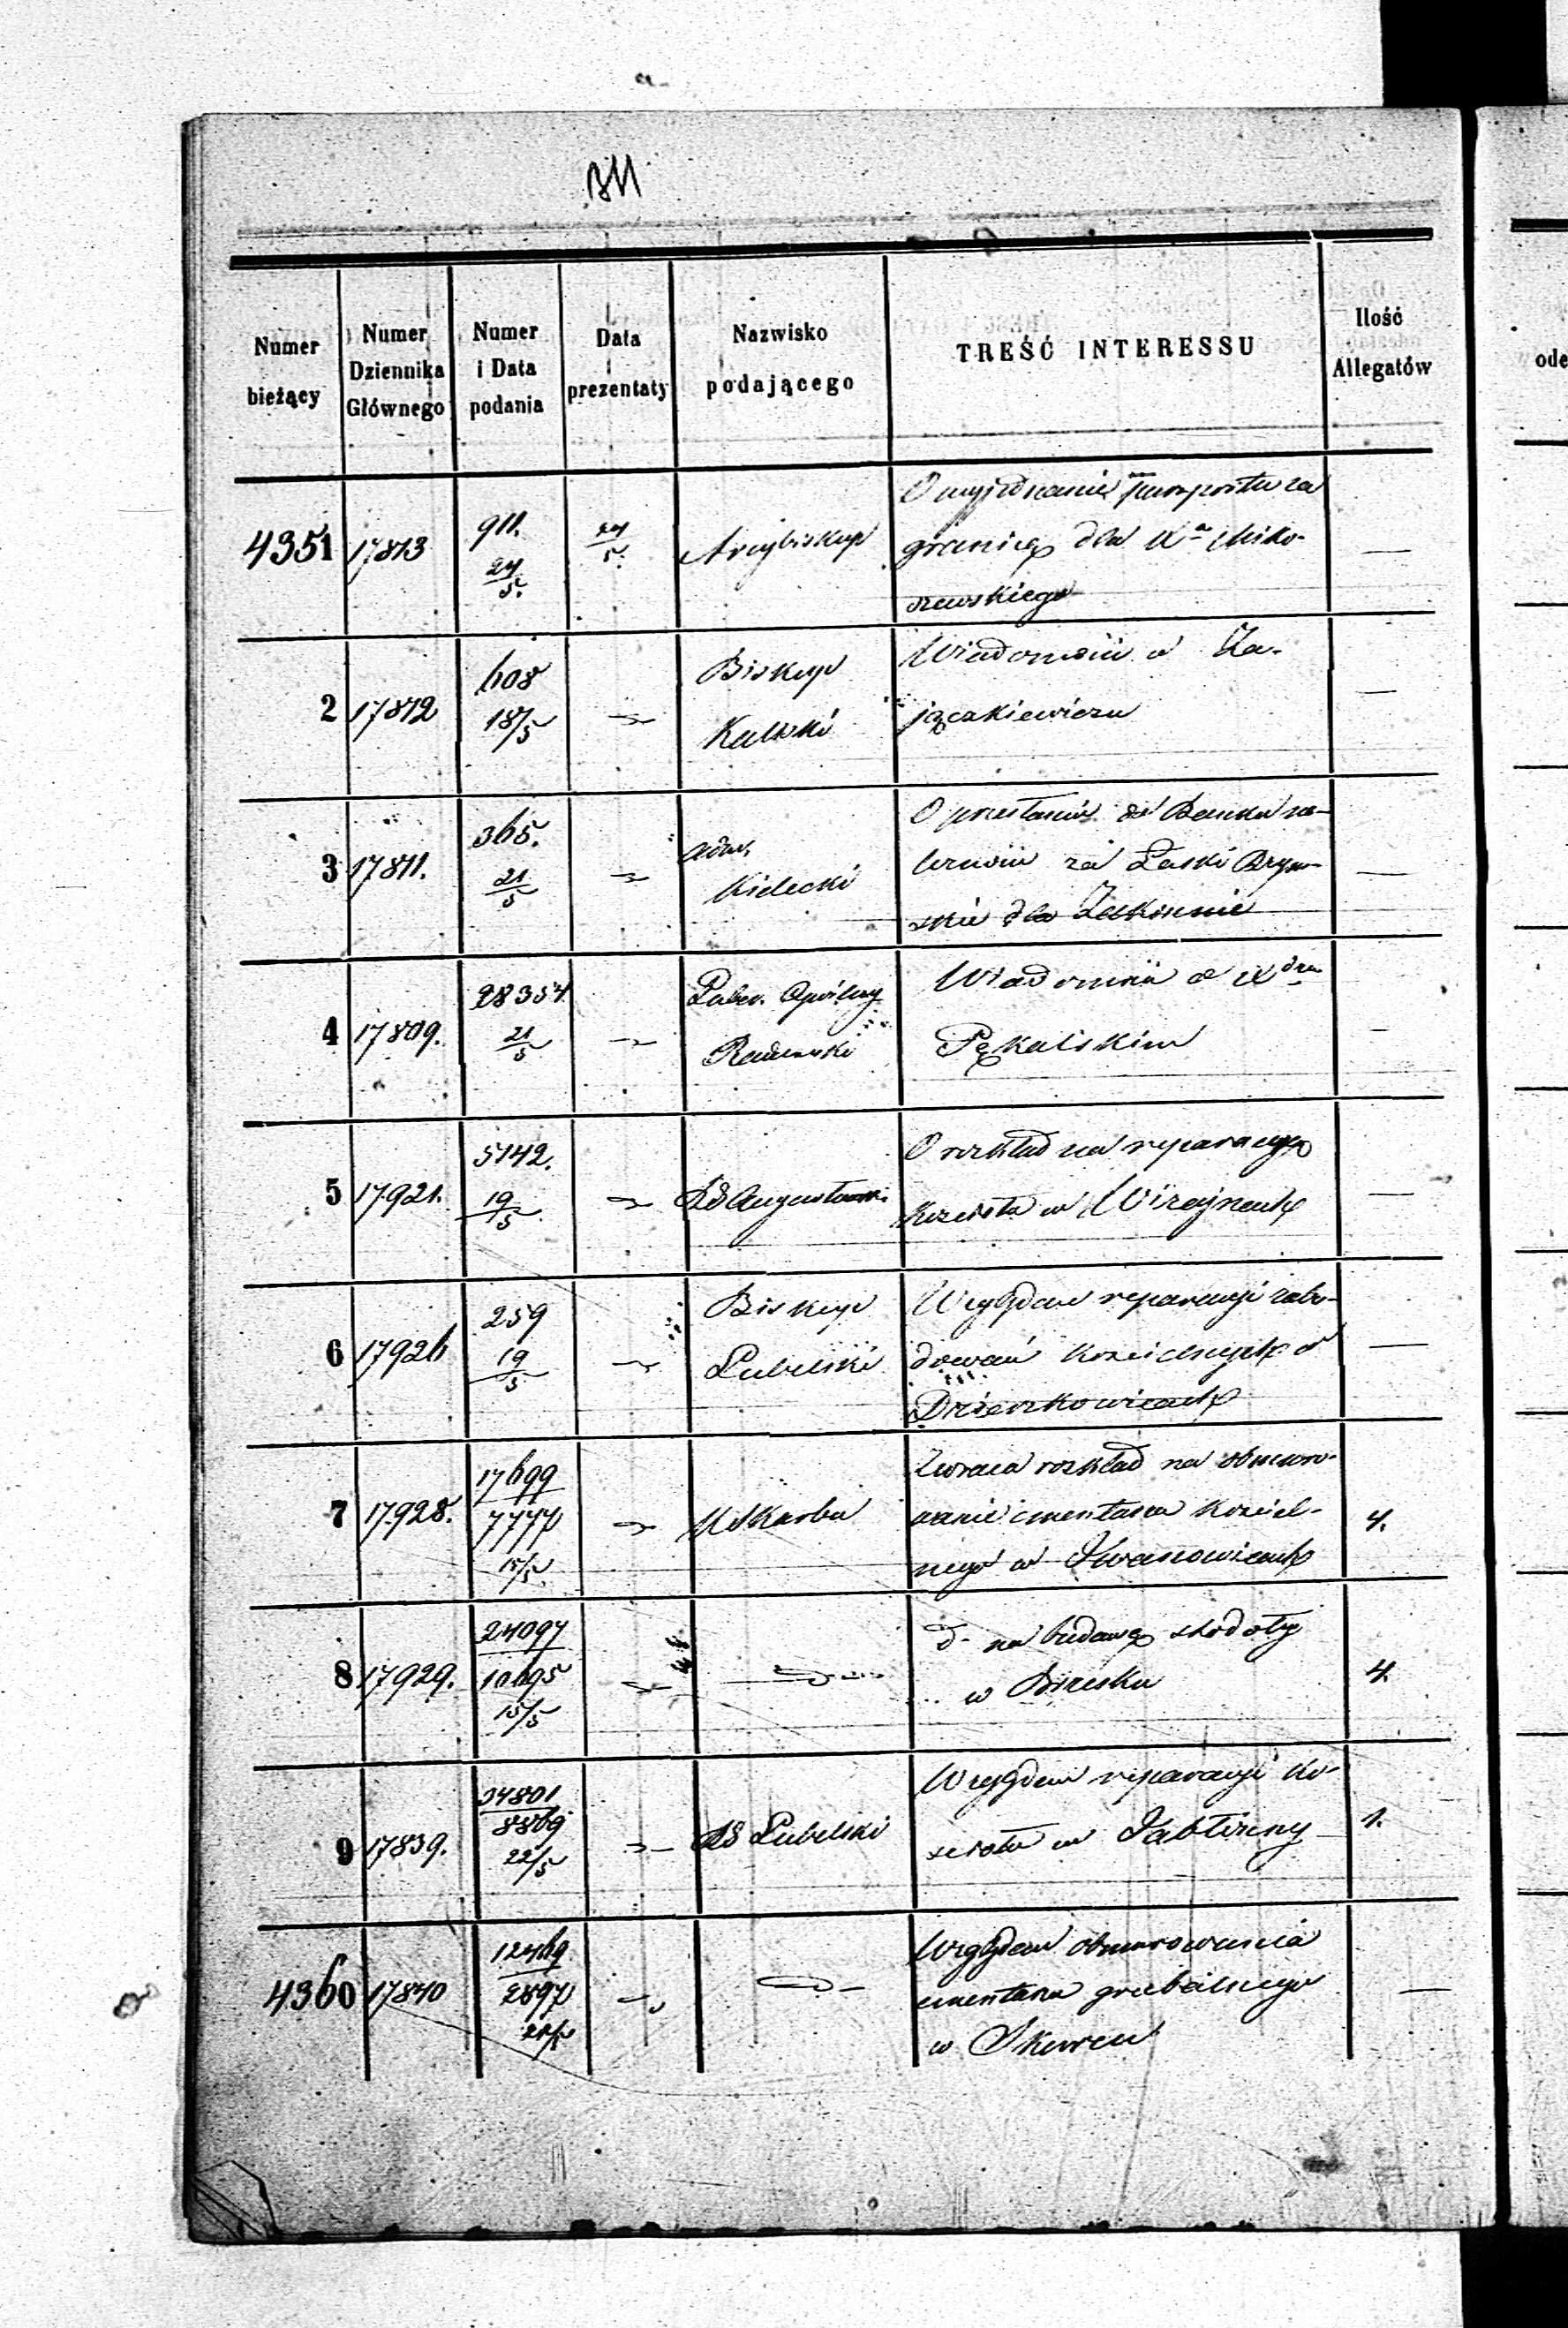 Numer bieżący
Numer Dziennika Głównego
Numer i Data podania
Data prezentaty
Nazwisko podającego
TREŚĆ INTERESSU
Ilość Allegatów
ode
4351 17813 911. 24/5. 24/5. Arcybiskup
O wyjednanie paszportu za
granicę dla Xa Miko-
szewskiego —
2 17812 608 18/5 Biskup
Kaliski
Wiadomość o Za-
jączkiewiczu —
3 17811. 365. 21/5 Adm.
Kielecki
O przesłanie do Banku na-
dla —
4 17809. 28354 21/5 Guber. Cywilny
Radomski
Wiadomość o
Pękalskim —
5 17921. 5142. 19/5 Augustowski
O rozkład na reparacyę
kościoła w Wizajnach —
6 17926 259 19/5 Biskup
Lubelski
Względem reparacyi zabu-
dowań kościelnych w
Dzierzkowicach —
7 17928. 17699 7777 15/5 Skarbu
Zwraca rozkład na obmuro-
wanie cmentarza kościel-
nego w Iwanowicach 4.
8 17929. 24097 10695 15/5
d- na budowę stodoły
w Brzesku 4.
9 17839. 34801 8869 22/5 Lubelski
Względem reparacyi ko-
scioła w 1.
4360 17840 12469 2897
Względem obmurowania
cmentarza grzebalnego
w —